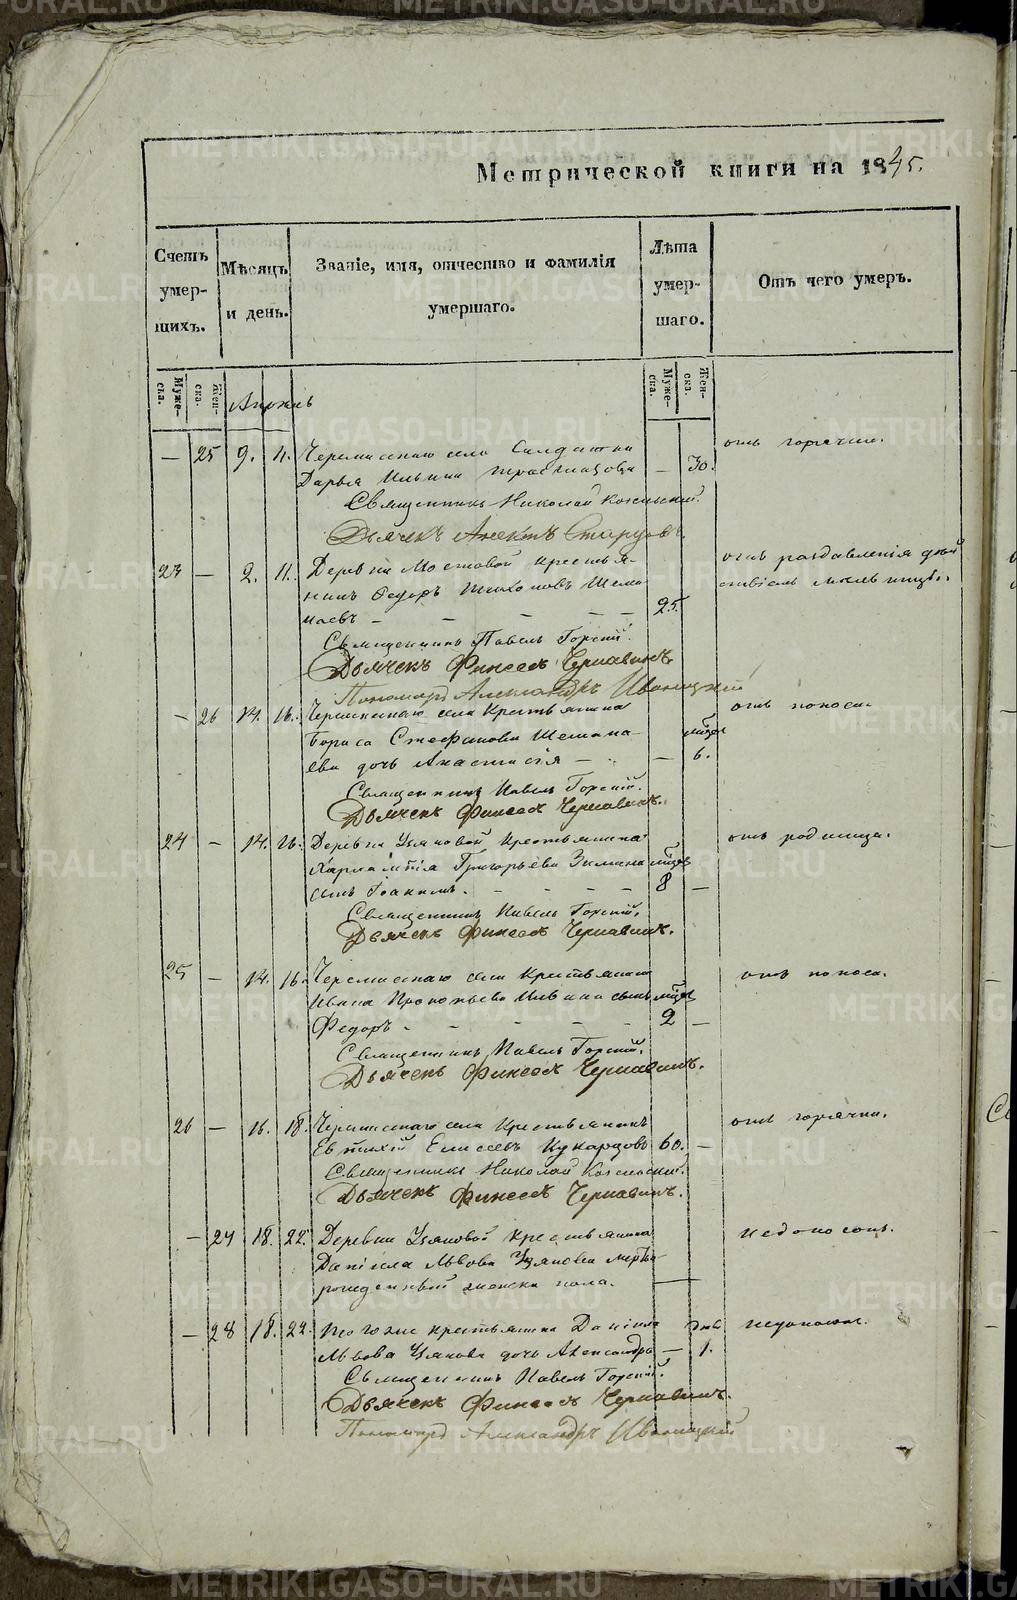 Метрической книги на 1845.
Счетъ умершихъ.
Мѣсяцъ и день.
Званіе, имя, отчество и фамилія умершаго.
Лѣта умершаго.
Отъ чего умеръ.
Мужеска.
Женска.
Мужеска.
Женска.
Апрѣль
— 25 9. 11. Черемисскаго села Солдатка отъ горячки.
Дарья Ильина — 30.
Священникъ Николай
Дьячекъ
23 — 2. 11. Деревни Мостовой крестья- отъ раздавленія
нинъ Ѳедоръ Шема-
наевъ — — — — 25.
Священникъ Павелъ Горскій.
Дьячекъ Финеесъ Чернавинъ.
Пономарь Александръ Иваницкій
— 26 14. 16. Черемисскаго села Крестьянина отъ поноса.
Бориса Стефанова Шемана-
ева дочь Анастасія — — 6.
Священникъ Павелъ Горскій.
Дьячекъ Финеесъ Чернавинъ.
24 — 14. 16. Деревни Узяновой Крестьянина отъ родимца.
Харлампія Григорьева Зимина
сынъ Іоакимъ. — — — — 8 —
Священникъ Павелъ Горскій.
Дьячекъ Финеесъ Чернавинъ.
25 — 14. 16. Черемисскаго села Крестьянина отъ поноса.
Ивана Прокопьева Ильина сынъ
Ѳедоръ — — — — — 2 —
Священникъ Павелъ Горскій.
Дьячекъ Финеесъ Чернавинъ.
26 — 16. 18. Черемисскаго села Крестьянинъ отъ горячки.
Евтихій Елисеевъ Кукарцовъ 60. —
Священникъ Николай
Дьячекъ Финеесъ Чернавинъ.
— 27 18. 22. Деревни Узяновой крестьянина недоносокъ.
Даніила Львова Узянова мертво-
рожденный женска пола.
— 28 18. 22. того же крестьянина Даніила недоносокъ.
Львова Узянова дочь Александра — 1.
Священникъ Павелъ Горскій.
Дьячекъ Финеесъ Чернавинъ.
Пономарь Александръ Иваницкій
METRIKI.GASO-URAL.RU